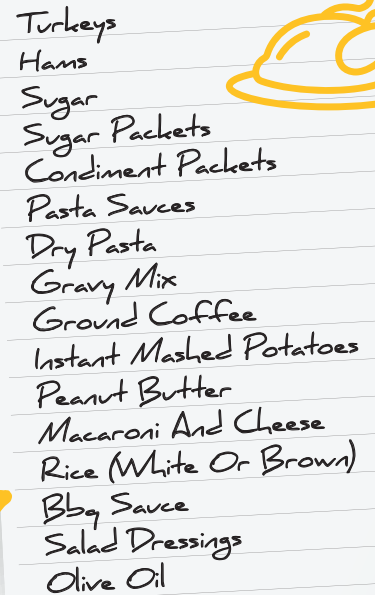 Turkeys
Hams
Sugar
Sugar Packets
Condiment Packets
Pasta Sauces
Dry Pasta
Gravy Mix
Ground Coffee
Instant Mashed Potatoes
Peanut Butter
Macaroni And Cheese
Rice (White Or Brown)
Bbq Sauce
Salad Dressings
Olive Oil